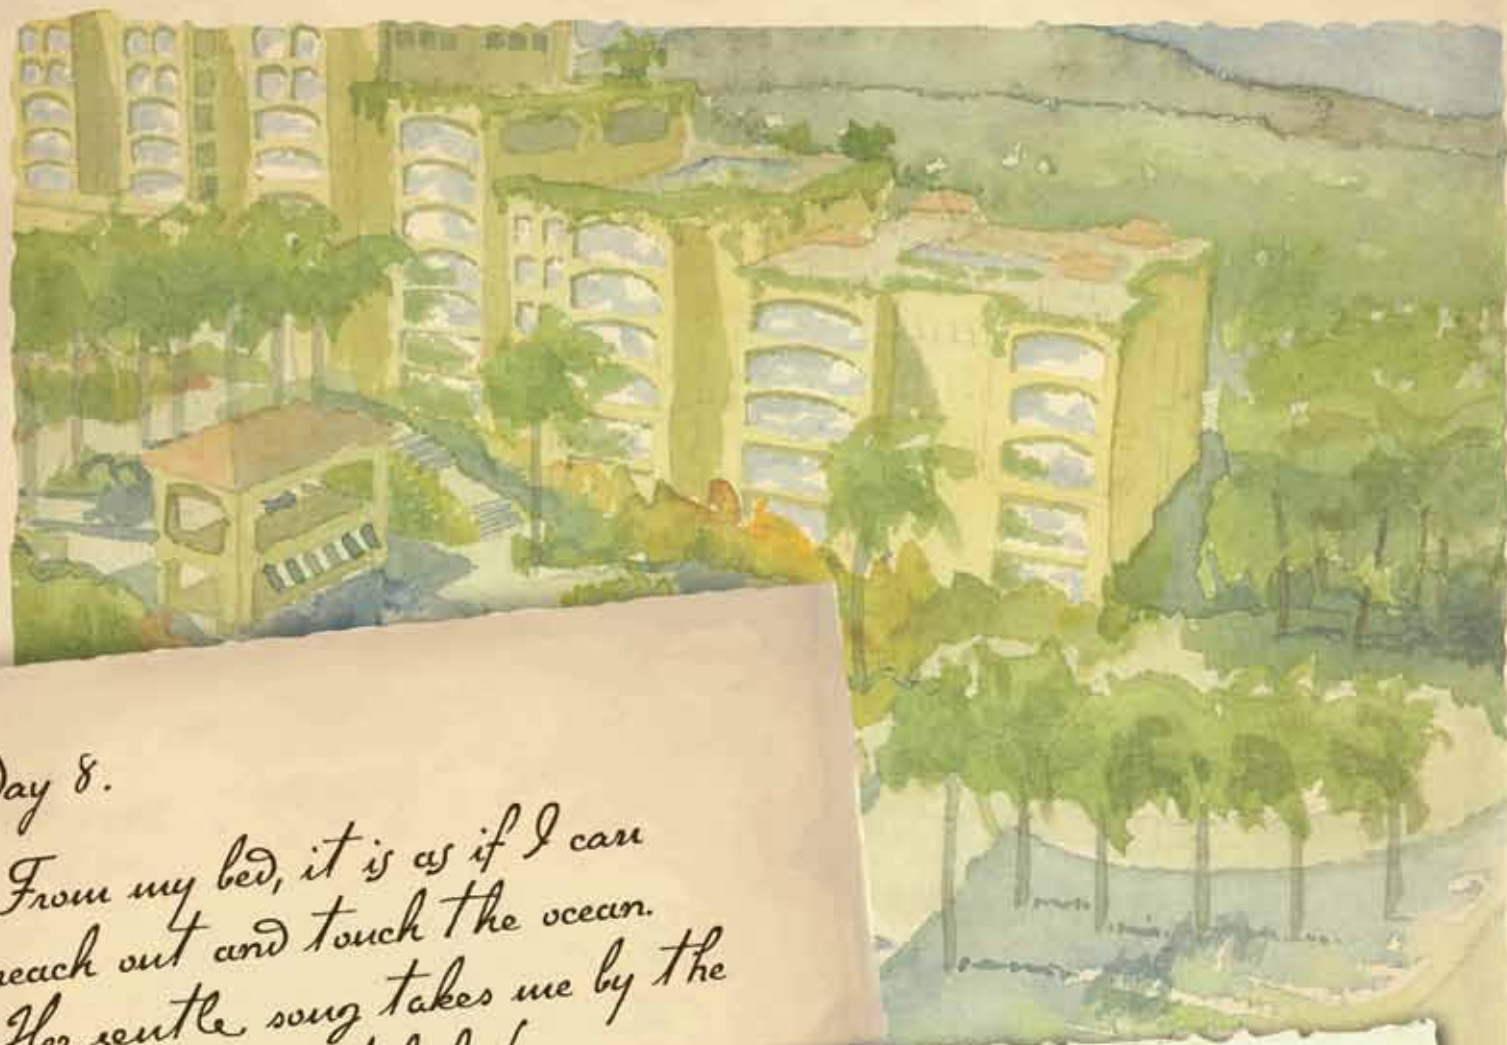 Day 8.
From my bed, it is as if I can
reach out and touch the ocean.
Her gentle song takes me by the